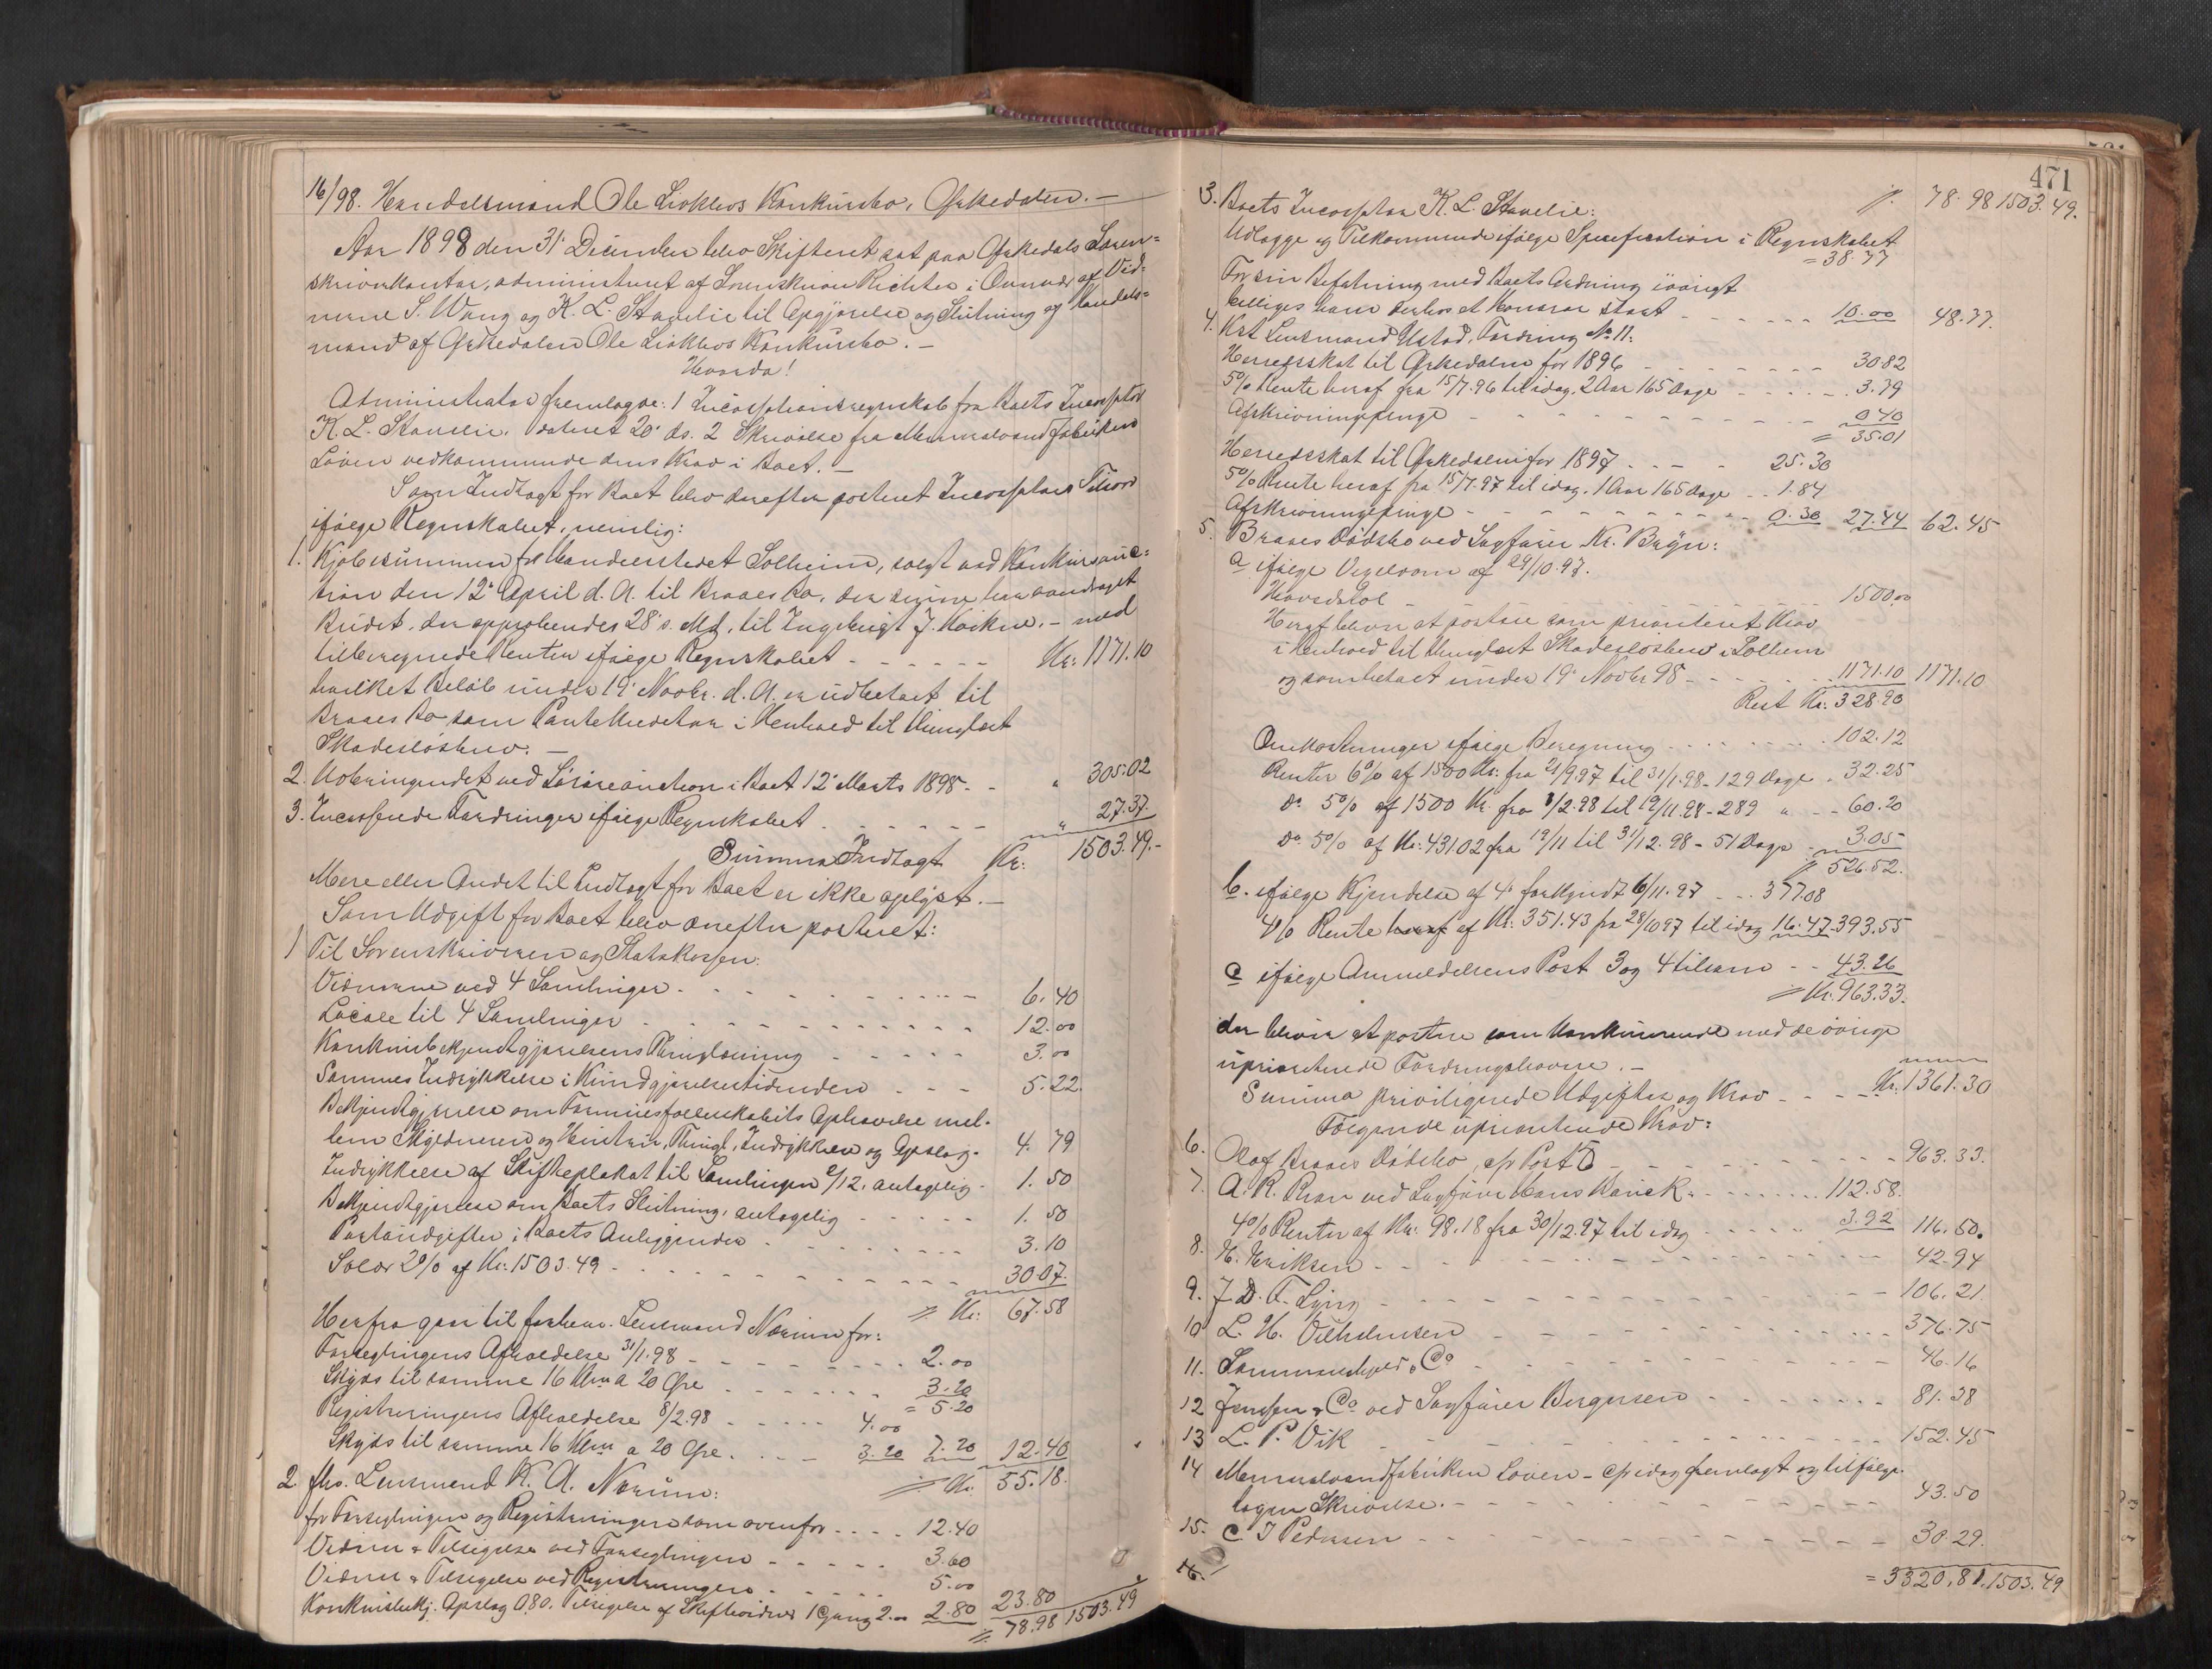 16/98. Handelsmand Ole Lioklevs Konkursbo, Orkedalen. —
Aar 1898 den 31' December blev Skifteret sat paa Orkedals Soren=
skriverkontor, administreret af Sorenskriver Richter i Overvær af Vid=
nerne S. Wang og K. L. Stavelie til Opgjørelse og Slutning af Handels=
mand af Orkedalen Ole Lioklevs Konkursbo. —
Hvorda!
Administrator fremlagde: 1 Incassationsregnskab fra Boets Incassator
K. L. Stavelie, dateret 20' ds. 2 Skrivelse fra Mineralvandfabriken
Løven vedkommende dens Krav i Boet. —
Som Indtægt for Boet blev derefter posteret Incassators Tilsvar
ifølge Regnskabet, nemlig:
1. Kjøbesummen for Handelsstedet Solheim, solgt ved Konkursauc=
tion den 12' April d. A. til Braaes Bo, der senere har overdraget
Budet, der approberedes 28' s. Md, til Ingebrigt J. Hoikne, — med
tilberegnede Renter ifølge Regnskabet - - - - - Kr: 1171.10
hvilket Beløb under 19' Novbr. d. A. er udbetalt til
Braaes Bo som Pantekreditor i Henhold til thinglæst
Skadesløsbrev. —
2. Udbringendet ved Løsøreauction i Boet 12' Marts 1898 - - " 305.02
3. Incasserede Fordringer ifølge Regnskabet - - - - - " 27.37.
Summa Indtægt Kr: 1503.49.-
Mere eller Andet til Indtægt for Boet er ikke oplyst. —
Som Udgift for Boet blev derefter posteret:
1 Til Sorenskriveren og Statskassen:
Vidnerne ved 4 Samlinger - - - - - - 6.40
Locale til 4 Samlinger - - - - - - 12.00
Konkursbekjendtgjørelsens Thinglæsning - - - - - 3.00
Sammes Indrykkelse i Kundgjørelsestidenden - - - 5.22.
Bekjendtgjørelse om Formuesfællesskabets Ophævelse mel-
lem Skyldneren og Hustru, Thingl., Indrykkelse og Opslag - 4.79
Indrykkelse af Skifteplakat til Samlingen 2/12, antagelig - 1.50
Bekjendtgjørelse om Boets Slutning, antagelig - - - - - 1.50
Portoudgifter i Boets Anliggender - - - - - 3.10
Salær 2% af Kr: 1503.49 - - - - - - 30.07.
// Kr: 67.58
Herfra gaar til forhenv. Lensmand Nærum for:
Forseglingens Afholdelse 31/1.98 - - - - - 2.00
Skyds til samme 16 Klm a 20 Øre - - - - - 3.20
= 5.20
Registreringens Afholdelse 8/2.98 - - - - - 4.00
Skyds til samme 16 Klm a 20 Øre. - - - 3.20 7.20 12.40
// Kr. 55.18.
2. fhv. Lensmand K. A. Nærum:
for Forseglingen og Registreringen som ovenfor - - - - 12.40
Vidner & Tilsigelse ved Forseglingen - - - - - 3.60
Vidner & Tilsigelse ved Registreringen - - - - - 5.00
Konkursbekj. Opslag 0.80. Tilsigelse af Skiftevidner 1 Gang 2.00 2.80 23.80
// 78.98 1503.49
471
// 78.98 1503.49.
3. Boets Incassator K. L. Stavelie:
Udlægge og Tilkommende ifølge Specification i Regnskabet
= 38.77
For sin Befatning med Boets Ordning iøvrigt
billiges ham derhos et Honorar stort - - - - - 10.00 48.77.
4. Kst Lensmand Ustad, Fordring No 11:
Herredsskat til Orkedalen for 1896 - - - - - 30.82
5% Rente heraf fra 15/7.96 til idag, 2 Aar 165 Dage - - - - - 3.79
Afskrivningspenge - - - - - - 0.40
= 35.01
Herredsskat til Orkedalen for 1897 - - - - 25.30
5% Rente heraf fra 15/7.97 til idag, 1 Aar 165 Dage - - 1.84
Afskrivningspenge - - - - - - 0.30 27.44 62.45
5. Braaes Dødsbo ved Sagfører Kr. Bryn:
a ifølge Vexeldom af 29/10.97.
Hovedstol - - - - - - 1500.00
Heraf bliver at postere som prioriteret Krav
i Henhold til thinglæst Skadesløsbrev i Solheim
og som betalt under 19' Novbr 98 - - - - - 1171.10 1171.10
Rest Kr: 328.90
Omkostninger ifølge Beregning - - - - - 102.12
Renter 6% af 1500 Kr: fra 21/9.97 til 31/1.98 - 129 Dage " 32.25
Do 5% af 1500 Kr. fra 1/2.98 til 19/11.98 - 289 " - - 60.20
Do 5% af Kr: 431.02 fra 19/11 til 31/12.98 - 51 Dage - 3.05
// 526.52.
b. ifølge Kjendelse af 4' forkyndt 6/11.97 - - - 377.08
4% Rente heraf af Kr: 351.43 fra 28/10 97 til idag 16.47 393.55
c ifølge Anmeldelsens Post 3 og 4 tilsam - - 43.26
// Kr: 963.33.
der bliver at postere som konkurrerende med de øvrige
uprioriterede Fordringshavere. —
Summa priviligerede Udgifter og Krav - - - - Kr. 1361.30
Følgende uprioriterede Krav:
6. Olaf Braaes Dødsbo, cfr Post 5 - - - - - 963.33.
7. A. K. Kran ved Sagfører Hans Bauck - - - - - 112.58.
4% Renter af Kr: 98.18 fra 30/12.97 til idag - - - - - 3.92 116.50.
8. H. Eriksen - - - - - - 42.94
9. J. D. F. Lyng - - - - - - 106.21.
10 L. H. Vilhelmsen - - - - - - 376.75
11. Sommerschield & Co - - - - - - 46.16
12 Jenssen & Co ved Sagfører Bergersen - - - - - 81.38
13 L. P. Vik - - - - - - 152.45
14 Mineralvandfabriken Løven - cfr idag fremlagt og tilfølge-
tagen Skrivelse. - - - - - - 43.50
15. C. J Pedersen - - - - - - 30.29.
16.
= 3320.81. 1503.49